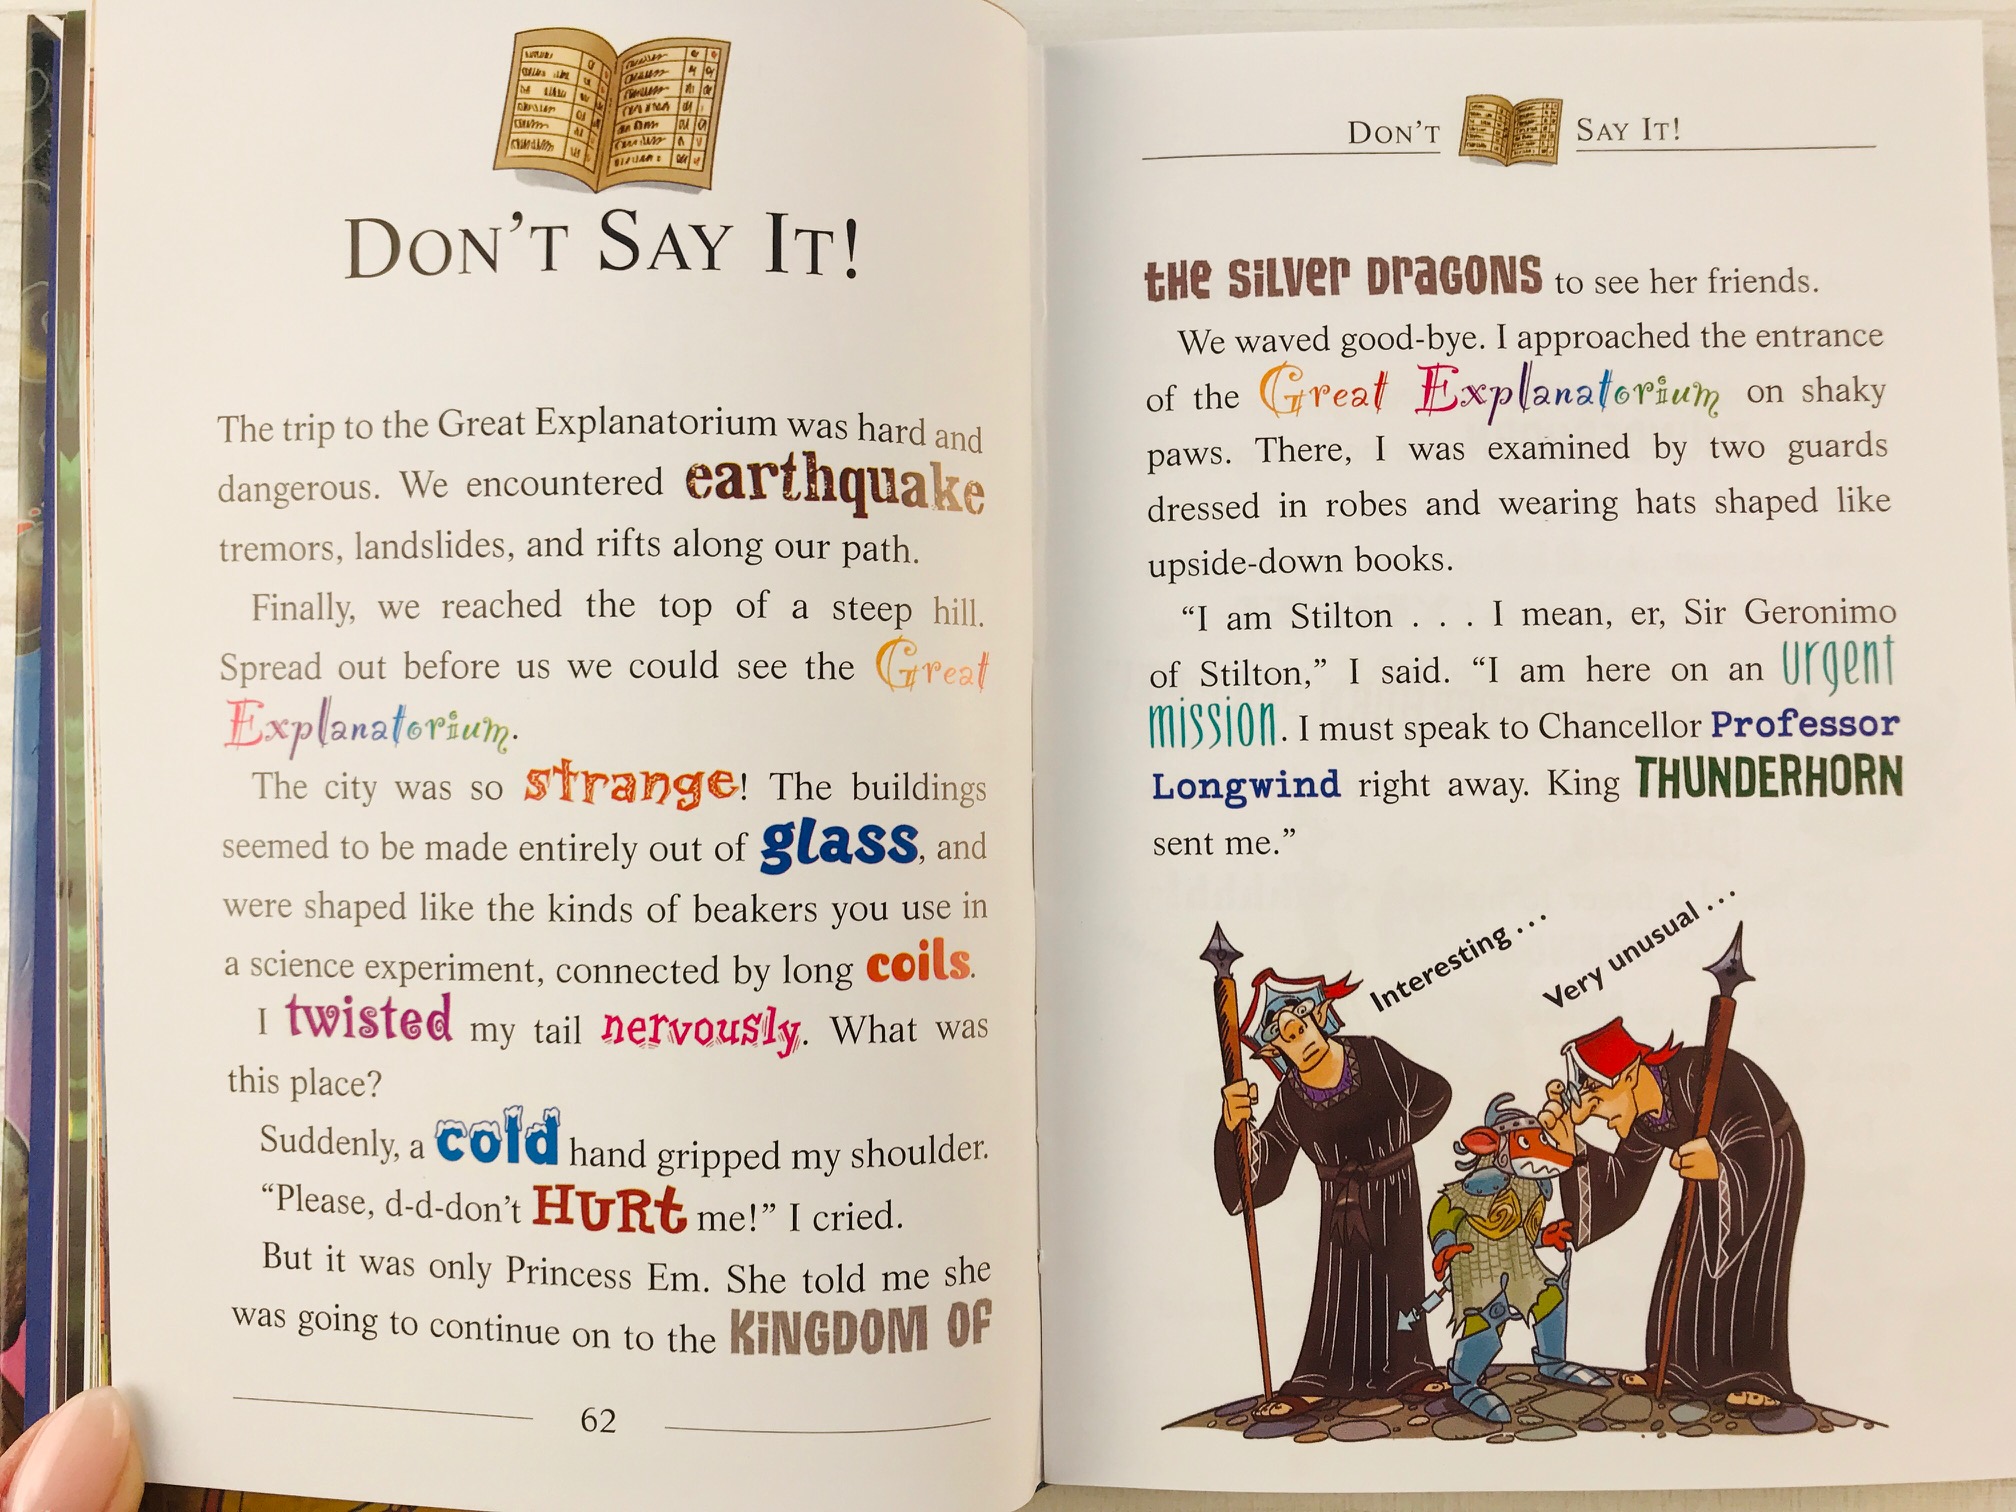 DON'T SAY IT!
The trip to the Great Explanatorium was hard and
dangerous. We encountered earthquake
tremors, landslides, and rifts along our path.
Finally, we reached the top of a steep hill.
Spread out before us we could see the Great
Explanatorium.
The city was so strange! The buildings
seemed to be made entirely out of glass, and
were shaped like the kinds of beakers you use in
a science experiment, connected by long coils.
I twisted my tail nervously. What was
this place?
Suddenly, a cold hand gripped my shoulder.
“Please, d-d-don't HURt me!” I cried.
But it was only Princess Em. She told me she
was going to continue on to the KiNGDOM OF
62
DON'T SAY IT!
tHe SiLVer DraGONS to see her friends.
We waved good-bye. I approached the entrance
of the Great Explanatorium on shaky
paws. There, I was examined by two guards
dressed in robes and wearing hats shaped like
upside-down books.
“I am Stilton . . . I mean, er, Sir Geronimo
of Stilton,” I said. “I am here on an urgent
mission. I must speak to Chancellor Professor
Longwind right away. King THUNDERHORN
sent me.”
Interesting . . .
Very unusual . . .